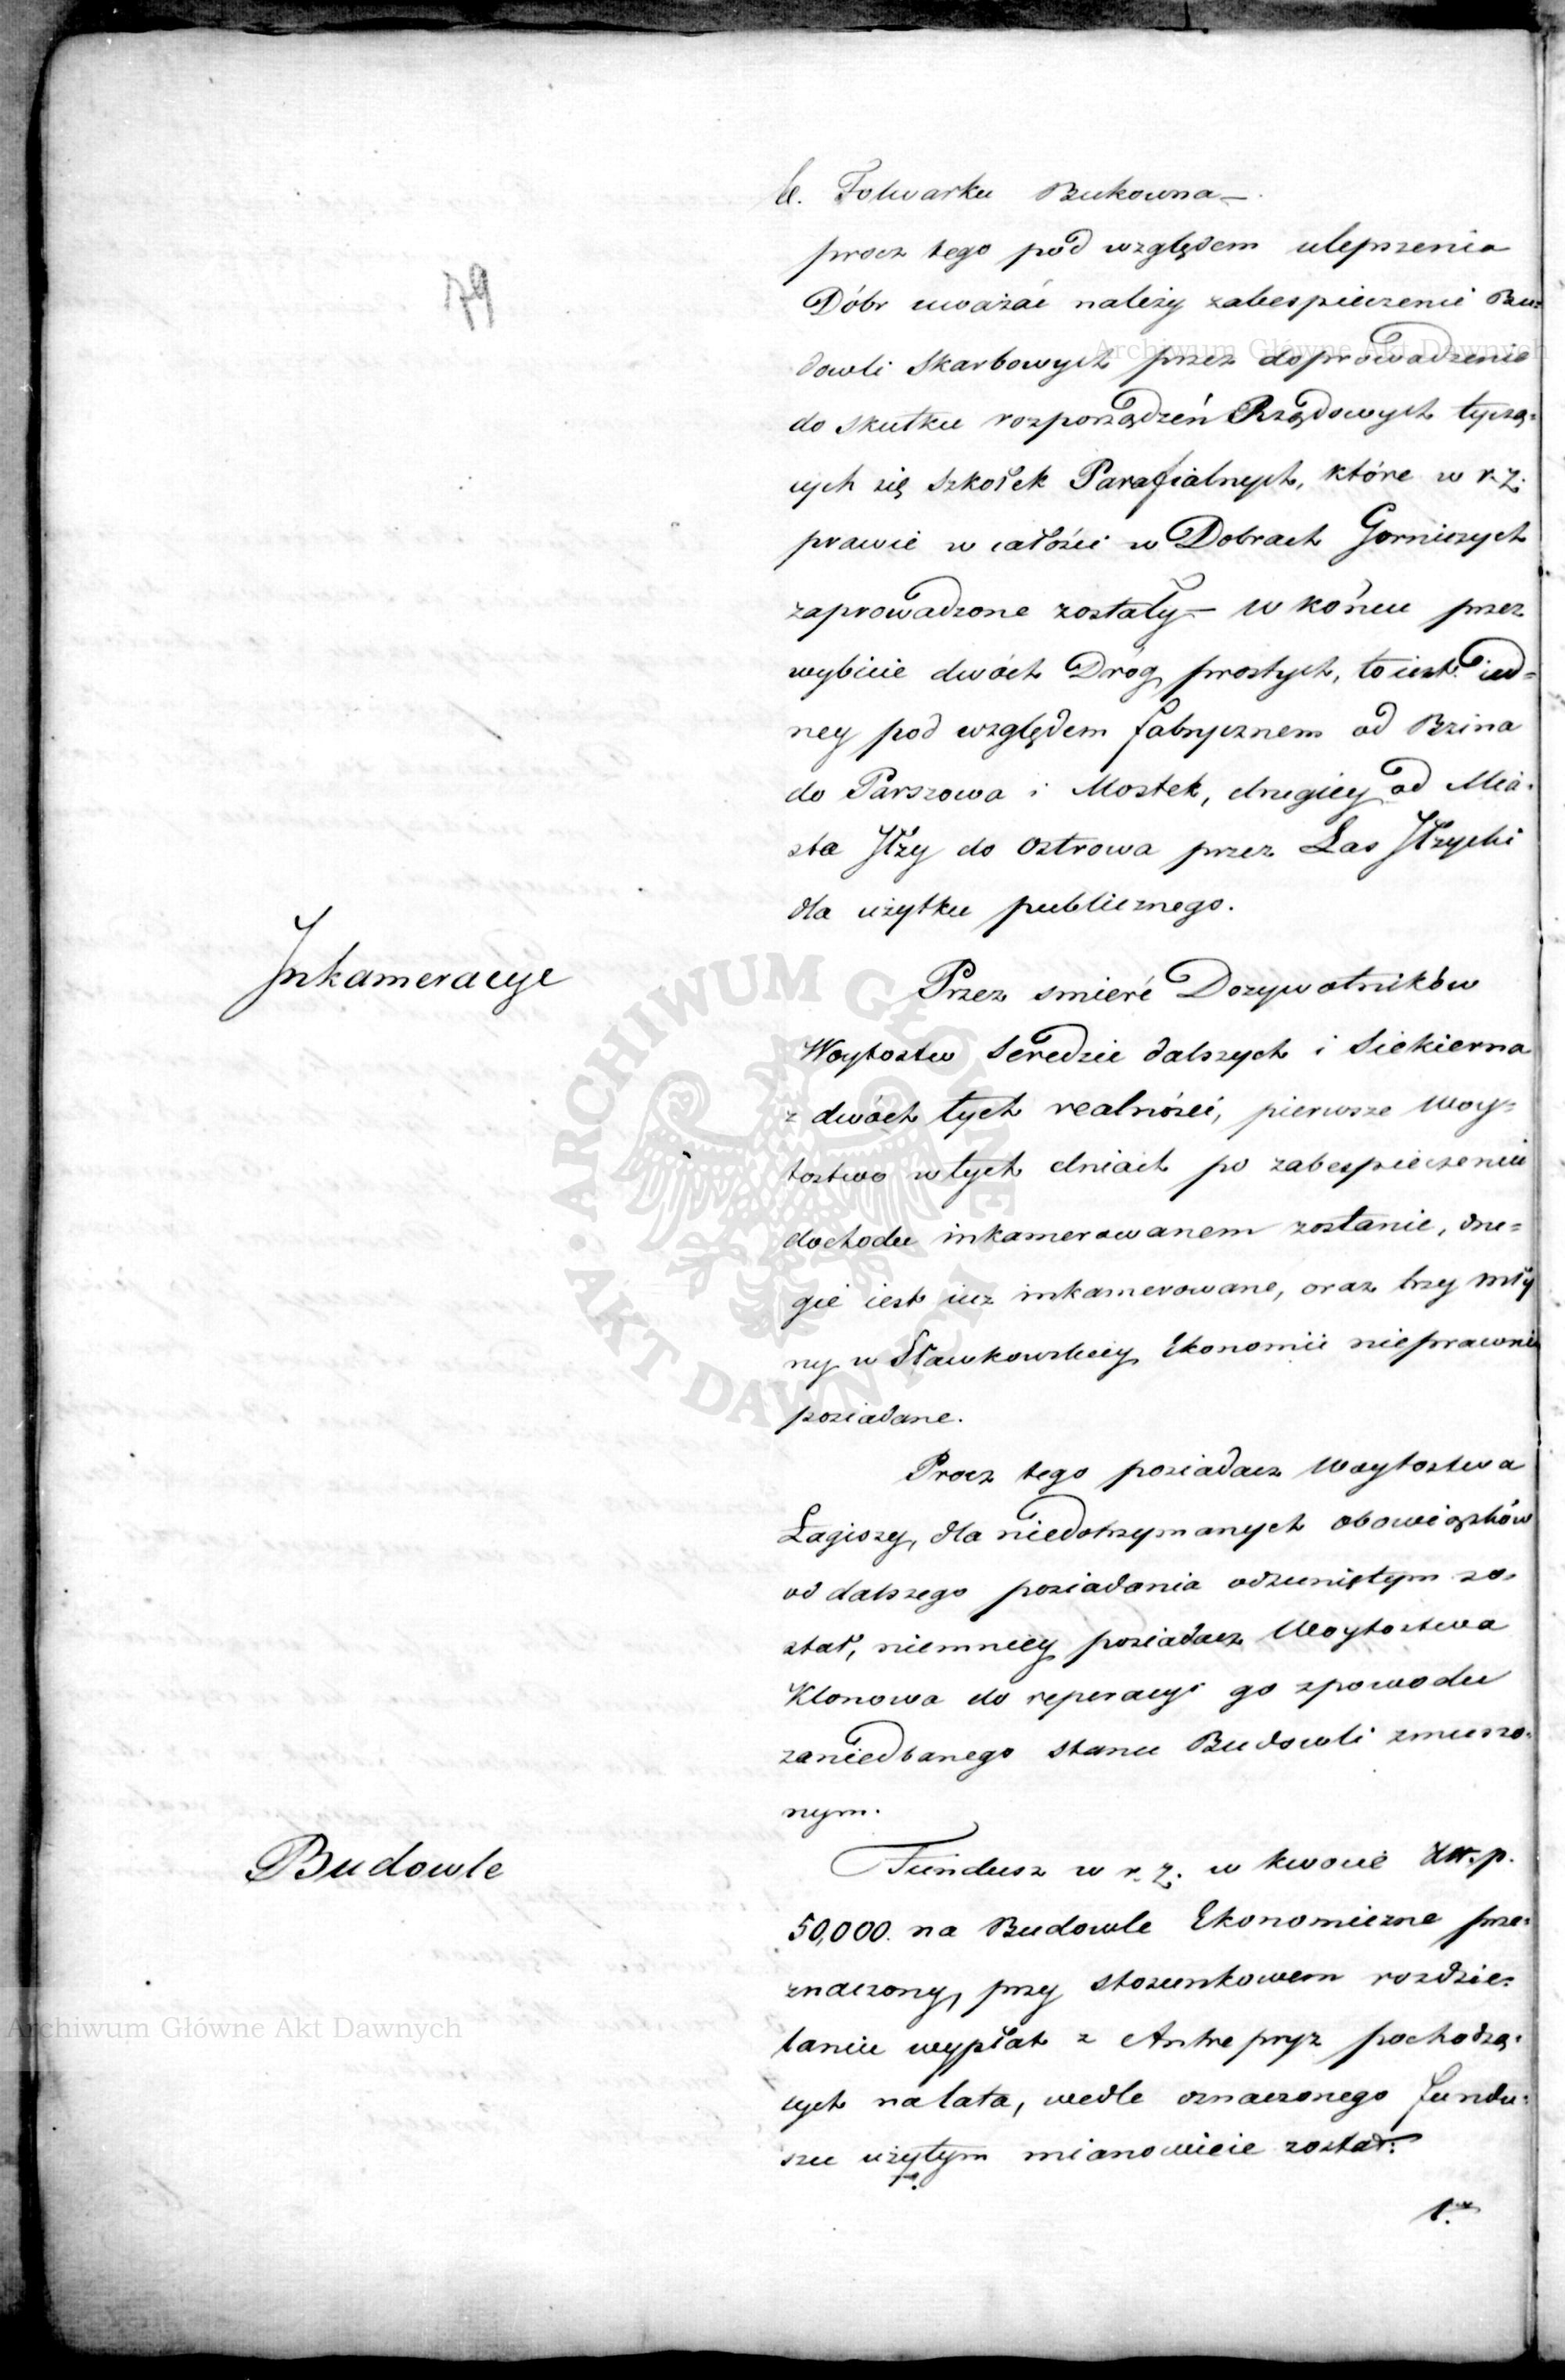 79
e. Folwarku Bukowna —
procz tego pod względem ulepszenia
Dóbr uważać należy zabespieczenie Bu=
dowli Skarbowych przez doprowadzenie
do skutku rozporządzeń Rządowych tyczą=
cych się Szkołek Parafialnych, które w r. z.
prawie w całości w Dobrach Gorniczych
zaprowadzone zostały — w końcu przez
wybicie dwóch Dróg prostych, to iest: ied=
ney pod względem fabrycznem od Bzina
do Parszowa i Mostek, drugiey od Mia=
sta Jłży do Ostrowa przez Las Jłżycki
dla użytku publicznego.
Inkameracye
Przez smierć Dozywotników
Woytostw Seredzie dalszych i Siekierna
z dwóch tych realności, pierwsze Woy=
tostwo w tych dniach po zabespieczeniu
dochodu inkamerowanem zostanie, dru=
gie iest iuz inkamerowane, oraz trzy mły
ny w Sławkowskiey Ekonomii nieprawnie
posiadane.
Procz tego posiadacz Woytostwa
Łagiszy, dla niedotrzymanych obowiązków
od dalszego posiadania odsuniętym zo=
stał, niemniey posiadacz Woytostwa
Klonowa do reperacyi go zpowodu
zaniedbanego stanu Budowli zmuszo=
nym.
Budowle
Fundusz w r. z. w kwocie Złt. p.
50,000. na Budowle Ekonomiczne prze=
znaczony, przy stosunkowem rozdzie=
laniu wypłat z Antrepryz pochodzą=
cych na lata, wedle oznaczonego fundu=
szu użytym mianowicie został:
1.
Archiwum Główne Akt Dawnych
Archiwum Główne Akt Dawnych
ARCHIWUM GŁÓWNE AKT DAWNYCH